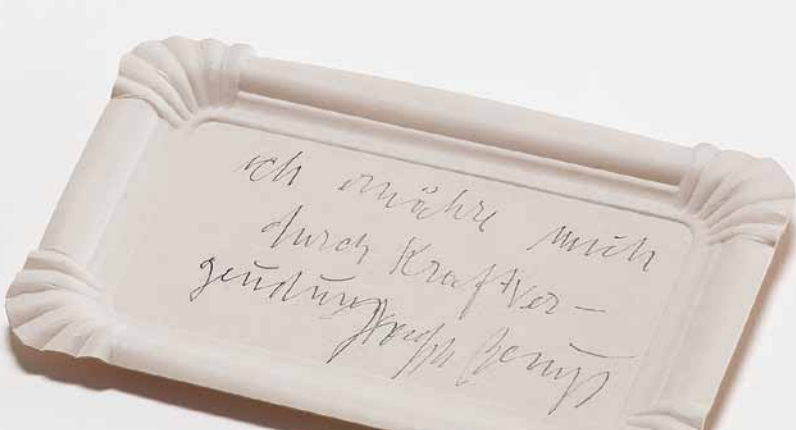 ich ernähre mich
durch Kraftver-
geudung Joseph Beuys